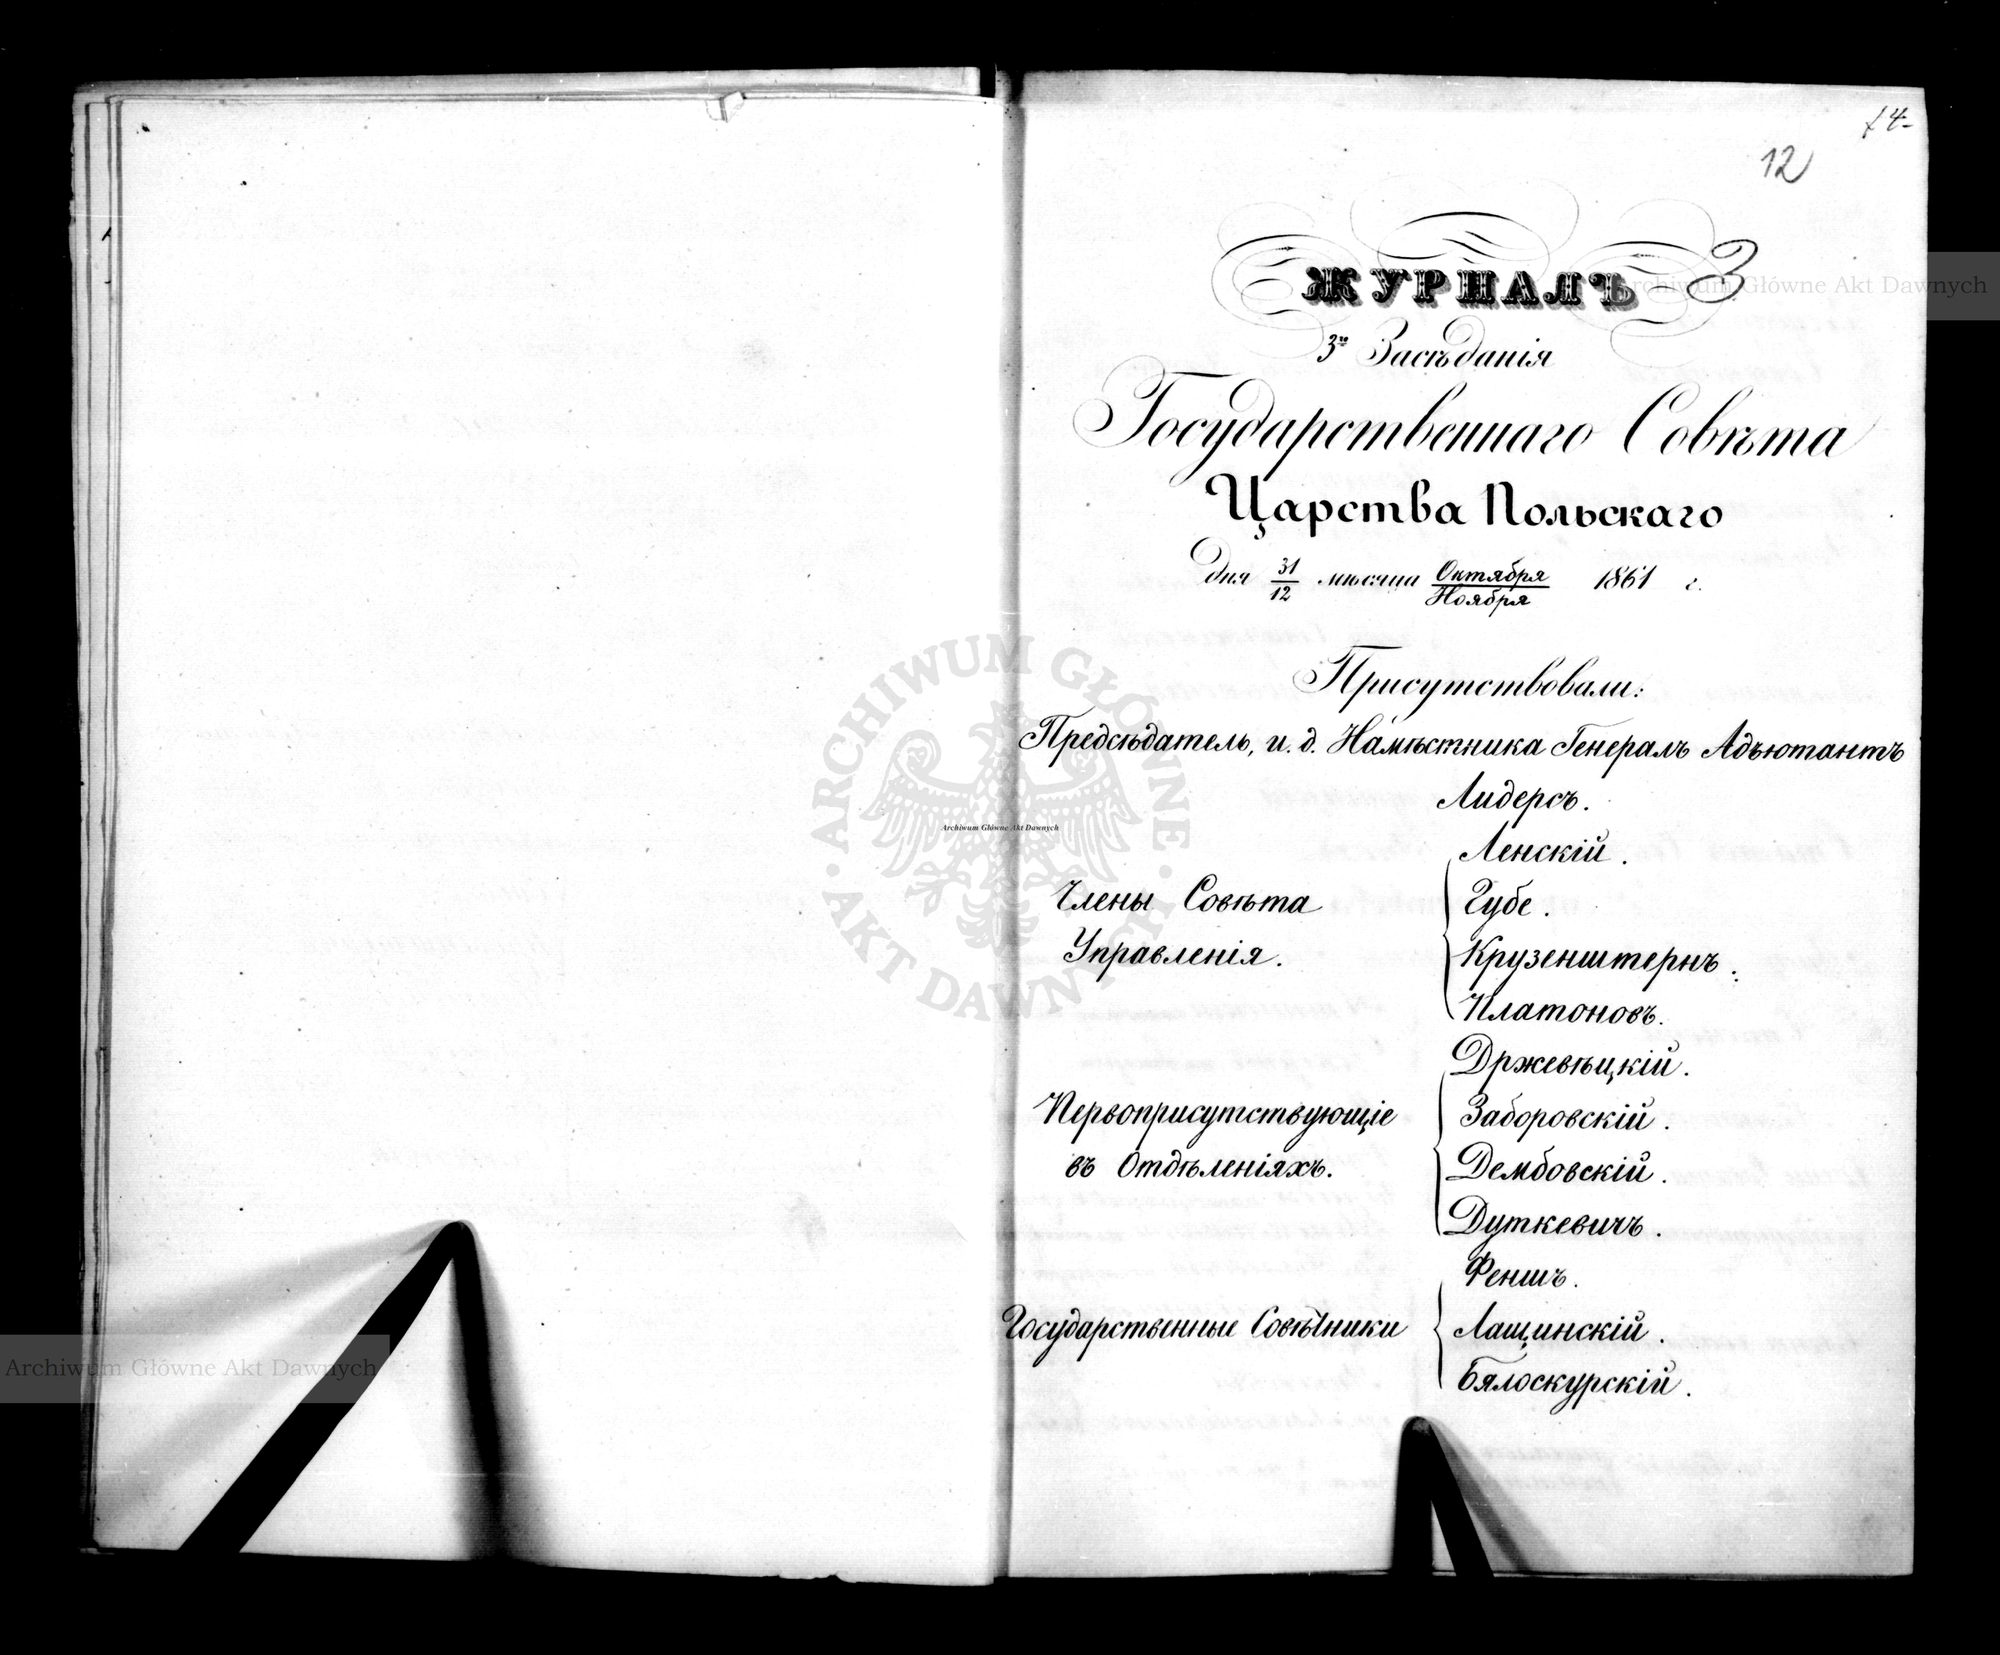 14-
12
ЖУРНАЛЪ 3
3го Засѣданія
Государственнаго Совѣта
Царства Польскаго
дня 31/12 мѣсяца Октября/Ноября 1861 г.
Присутствовали:
Предсѣдатель, и. д. Намѣстника Генералъ Адъютантъ
Лидерсъ.
Члены Совѣта
Управленія.
Ленскій.
Губе.
Крузенштернъ.
Платоновъ.
Первоприсутствующіе
въ Отдѣленіяхъ.
Држевѣцкій.
Заборовскій.
Дембовскій.
Дуткевичъ.
Государственные Совѣтники
Феншъ.
Лащинскій.
Бялоскурскій.
Archiwum Główne Akt Dawnych
ARCHIWUM GŁÓWNE • AKT DAWNYCH •
Archiwum Główne Akt Dawnych
Archiwum Główne Akt Dawnych